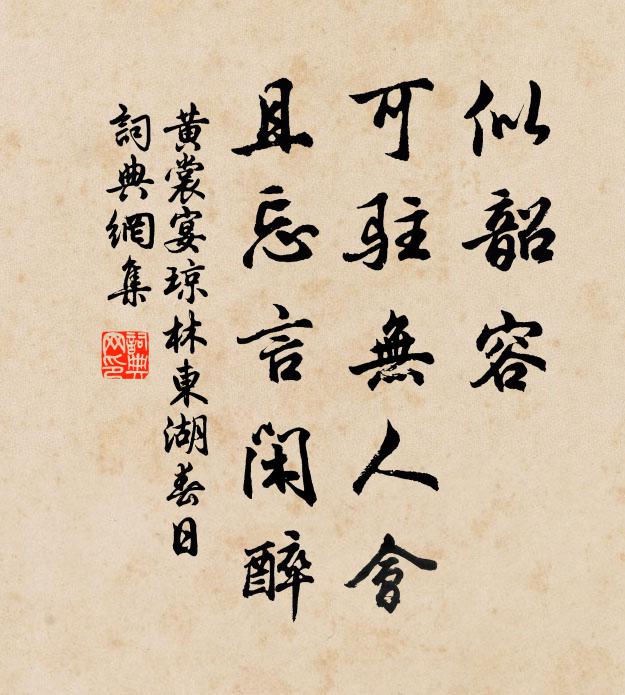 似韶容
可駐無人會
且忘言閑醉
黃裳宴琼林東湖春日
詞典網集
詞典
网印